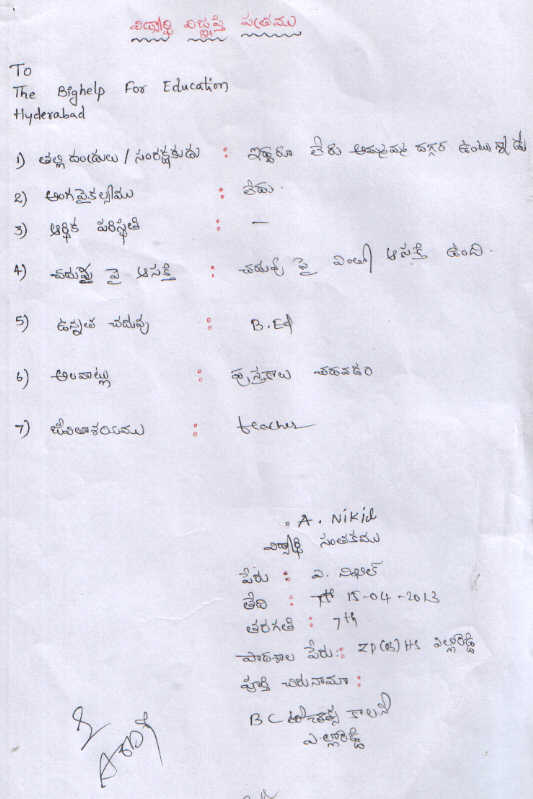 విద్యార్థి విజ్ఞప్తి పత్రము
To
The Bighelp For Education
Hyderabad
1) తల్లి దండ్రులు / సంరక్షకుడు : ఇద్దరూ లేరు అమ్మమ్మ దగ్గర ఉంటున్నాడు
2) అంగవైకల్యము : లేదు.
3) ఆర్థిక పరిస్థితి : —
4) చదువు పై ఆసక్తి : చదువు పై ఎంతో ఆసక్తి ఉంది.
5) ఉన్నత చదువు : B.Ed
6) అలవాట్లు : పుస్తకాలు చదవడం
7) జీవితాశయము : teacher
A. Nikil
విద్యార్థి సంతకము
పేరు : ఎ. నిఖిల్
తేది : 15-04-2013
తరగతి : 7th
పాఠశాల పేరు : ZP HS ఎల్లారెడ్డి
పూర్తి చిరునామా :
BC కాలనీ
ఎల్లారెడ్డి